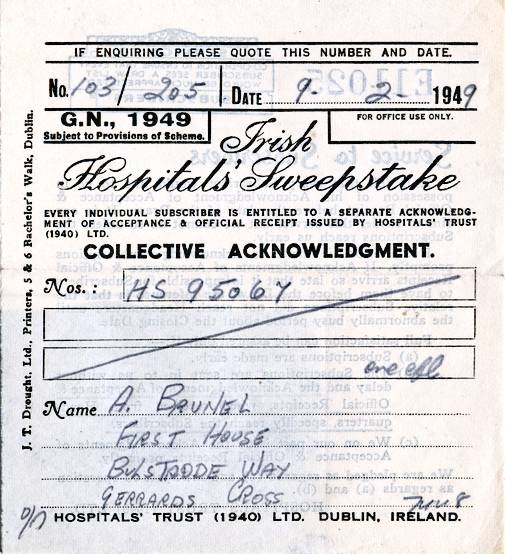 IF ENQUIRING PLEASE QUOTE THIS NUMBER AND DATE.
No. 103/205 DATE 9. 2. 1949
G.N., 1949
Subject to Provisions of Scheme.
FOR OFFICE USE ONLY.
Irish
Hospitals' Sweepstake
EVERY INDIVIDUAL SUBSCRIBER IS ENTITLED TO A SEPARATE ACKNOWLEDG-
MENT OF ACCEPTANCE & OFFICIAL RECEIPT ISSUED BY HOSPITALS' TRUST
(1940) LTD.
COLLECTIVE ACKNOWLEDGMENT.
Nos.: HS 95067
one
Name A. BRUNEL
FIRST HOUSE
BULSTRODE WAY
GERRARDS CROSS
HOSPITALS' TRUST (1940) LTD. DUBLIN, IRELAND.
J. T. Drought, Ltd., Printers, 5 & 6 Bachelor's Walk, Dublin.